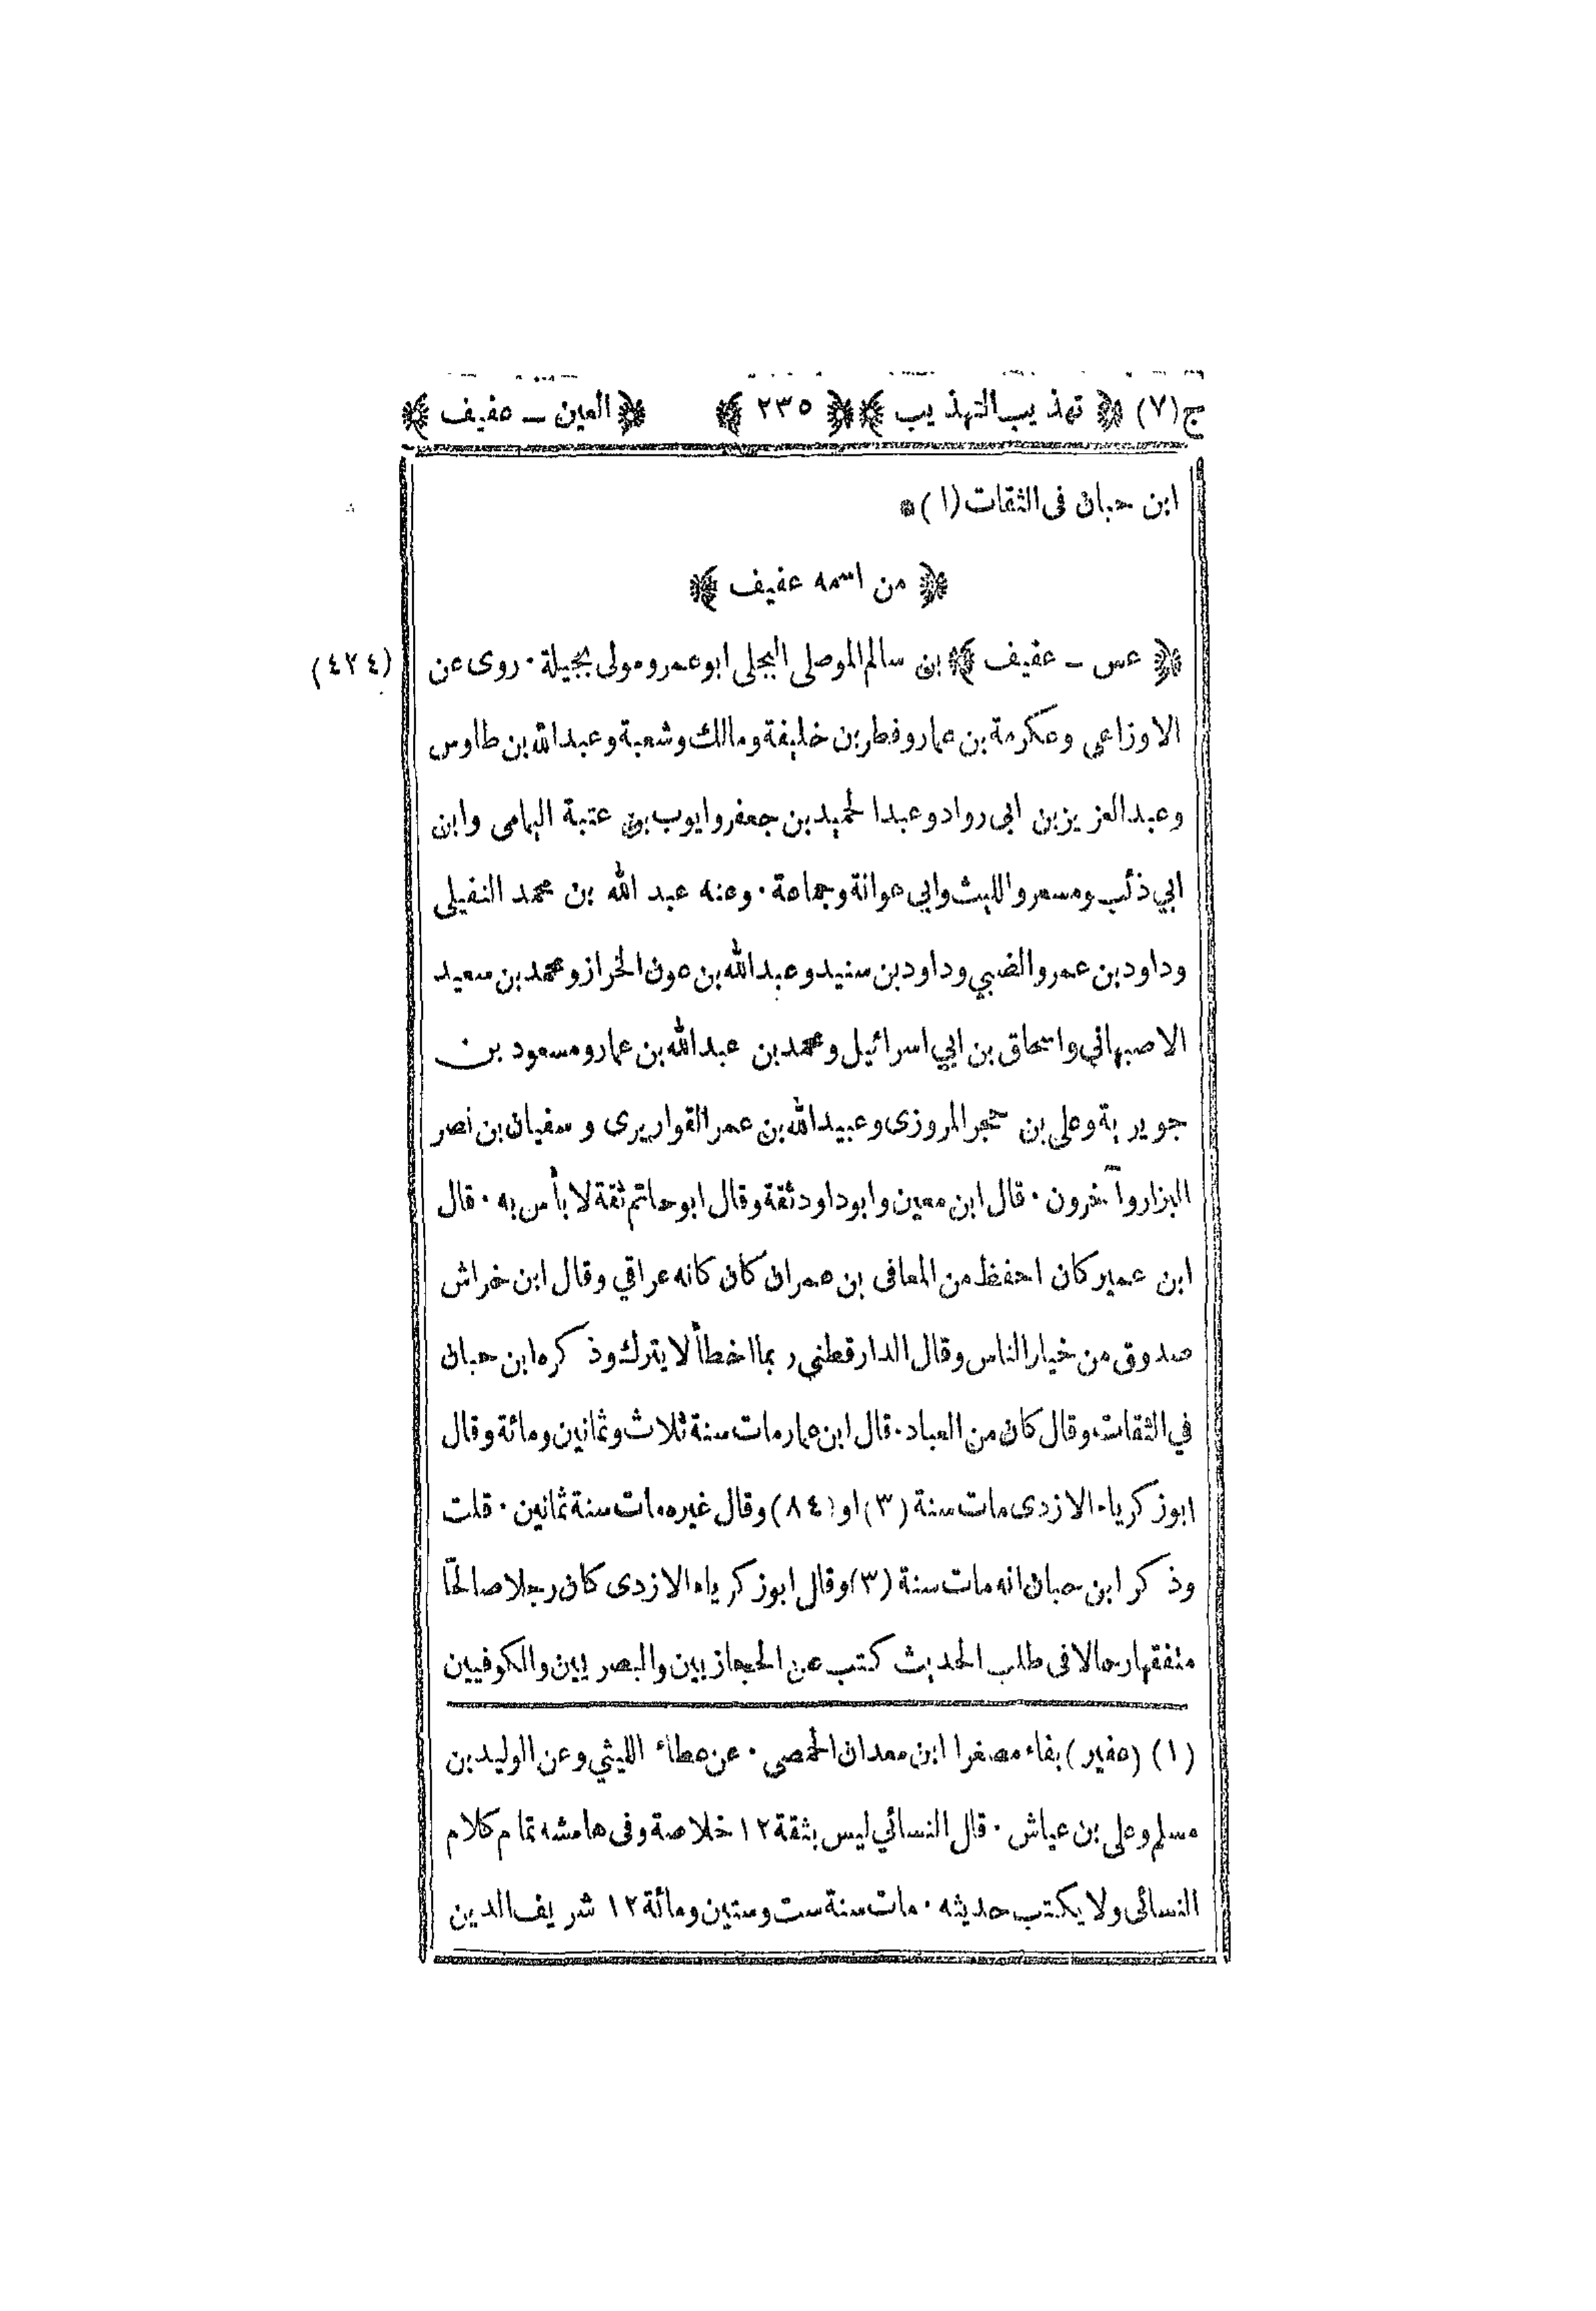 ج(٧) ﴿ تهذيب التهذيب ﴾ ﴿ ٢٣٥ ﴾ ﴿ العين ـ عفيف ﴾
ابن حبان فى الثقات (١) *
﴿ من اسمه عفيف ﴾
﴿ عس ـ عفيف ﴾ بن سالم الموصلى البجلى ابو عمرو مولى بجيلة · روى عن (٤٢٤)
الاوزاعى وعكرمة بن عمار وفطر بن خليفة ومالك وشعبة وعبد الله بن طاوس
وعبد العزيز بن ابى رواد وعبد الحميد بن جعفر وايوب بن عتبة اليمامى وابن
ابي ذئب ومسعر والليث وابي عوانة وجماعة · وعنه عبد الله بن محمد النفيلى
وداود بن عمرو الضبي وداود بن سنيد وعبد الله بن عون الخراز ومحمد بن سعيد
الاصبهاني واسحاق بن ابي اسرائيل ومحمد بن عبد الله بن عمار ومسعود بن
جويرية وعلى بن حجر المروزى وعبيد الله بن عمر القواريرى و سفيان بن نصر
البزار وآخرون · قال ابن معين وابو داود ثقة وقال ابو حاتم ثقة لا بأس به · قال
ابن عمير كان احفظ من المعافى بن عمران كان كانه عراقي وقال ابن خراش
صدوق من خيار الناس وقال الدارقطني ربما اخطأ لا يترك وذكره ابن حبان
في الثقات وقال كان من العباد · قال ابن عمار مات سنة ثلاث وثمانين ومائة وقال
ابو زكرياء الازدى مات سنة (٣) او (٨٤) وقال غيره مات سنة ثمانين · قلت
وذكر ابن حبان انه مات سنة (٣) وقال ابو زكرياء الازدى كان رجلا صالحًا
متفقها رحالا فى طلب الحديث كتب عن الحجازيين والبصريين والكوفيين
(١) (عفير) بفاء مصغرا ابن معدان الحمصى · عن عطاء الليثي وعن الوليد بن
مسلم وعلى بن عياش · قال النسائي ليس بثقة ١٢ خلاصة وفى هامشه تمام كلام
النسائى ولا يكتب حديثه · مات سنة ست وستين ومائة ١٢ شريف الدين